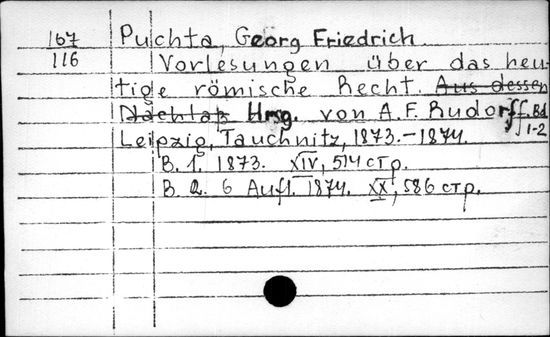 167
116
Puchta, Georg Friedrich.
Vorlesungen über das heu-
tige römische Recht. Aus dessen
Nachlaß Hrsg. von A. F. Rudorff. Bd
1-2
Leipzig, Tauchnitz, 1873.-1874.
B. 1. 1873. XIV, 514 стр.
B. 2. 6 Aufl. 1874. XX, 586 стр.